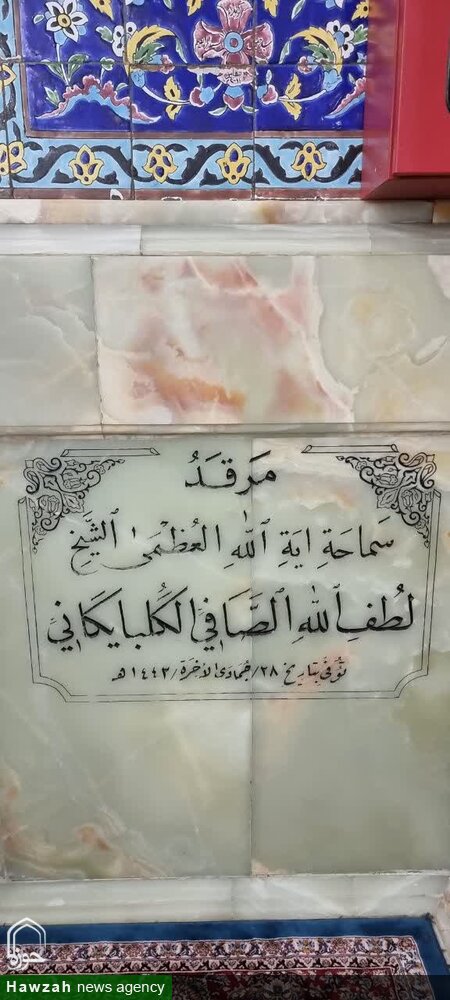 مَرقَدُ
سَماحَةِ ايَةِ ٱللهِ العُظمىٰ ٱلشَّيخ
لُطفِ ٱللهِ ٱلصَّافي الگلبايكاني
تُوُفّي بتاريخ ٢٨/جُمادى الآخرة/١٤٤٣هـ
حوزه
Hawzah news agency